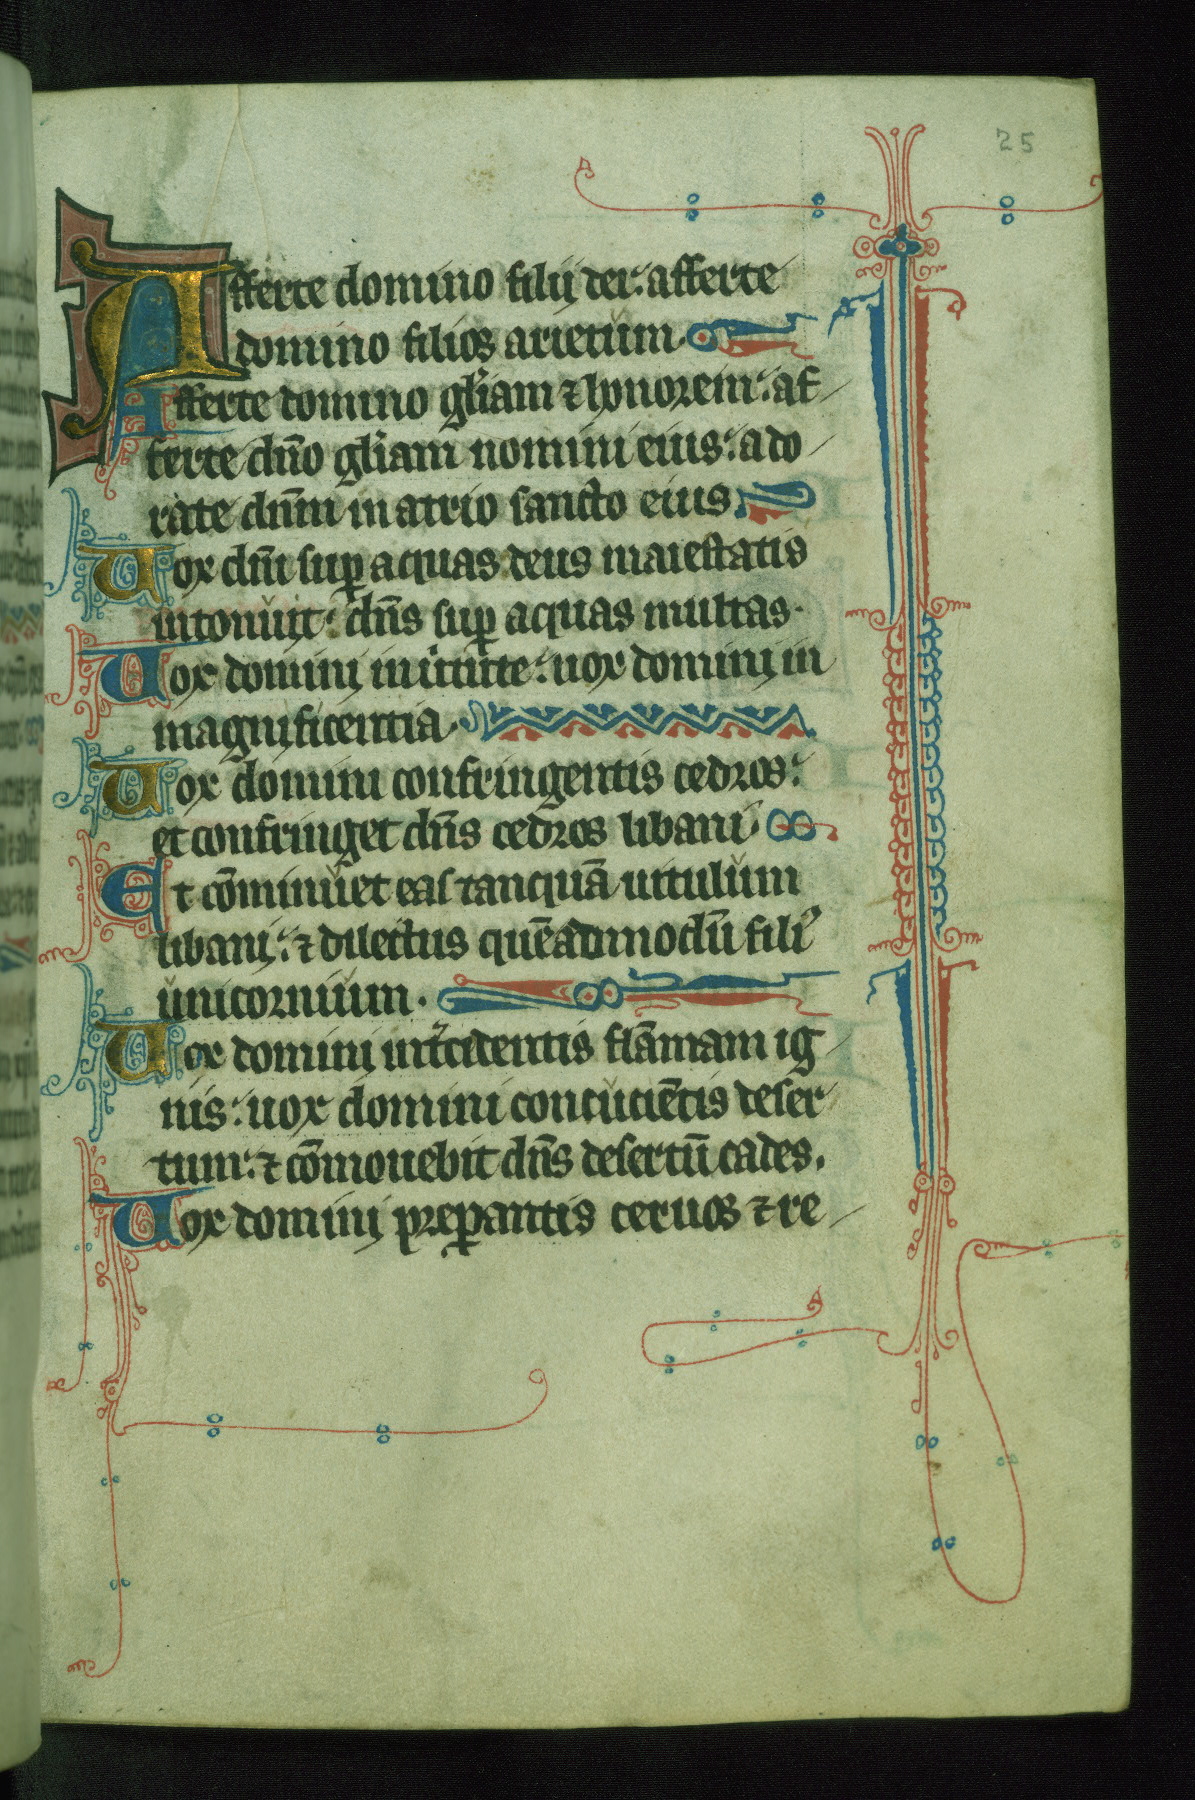 25
Afferte domino filij dei: afferte
domino filios arietum.
Afferte domino gl̄iam ⁊ honorem: af
ferte dn̄o gl̄iam nomini eius: ado
rate dn̄m in atrio sancto eius
Uox dn̄i suꝑ aquas deus maiestatis
intonuit: dn̄s suꝑ aquas multas.
Uox domini in uirtute: uox domini in
magnificentia.
Uox domini confringentis cedros:
et confringet dn̄s cedros libani.
Et cōminuet eas tanquā uitulum
libani: ⁊ dilectus quēadmodū fili᷒
unicornium.
Uox domini int̾cedentis flāmam ig
nis: uox domini concuciētis deser
tum: ⁊ cōmouebit dn̄s desertū cades.
Uox domini preꝑantis ceruos ⁊ re